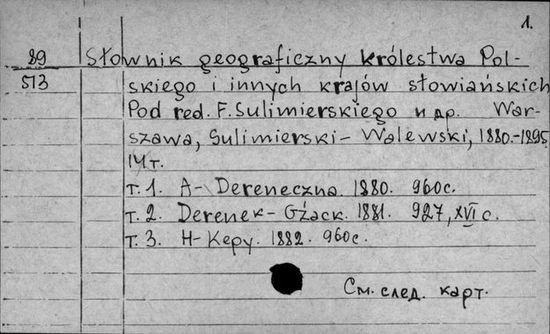 1.
89 Słownik geograficzny królestwa Pol-
513 skiego i innych krajów słowiańskich
Pod red. F. Sulimierskiego и др. War-
szawa, Sulimierski-Walewski, 1880.-1895
14т.
т. 1. A- Dereneczna 1880. 960с.
т. 2. Derenek- Gżack. 1881. 927, XVI с.
т. 3. H- Kępy. 1882. 960с.
См. след. карт.